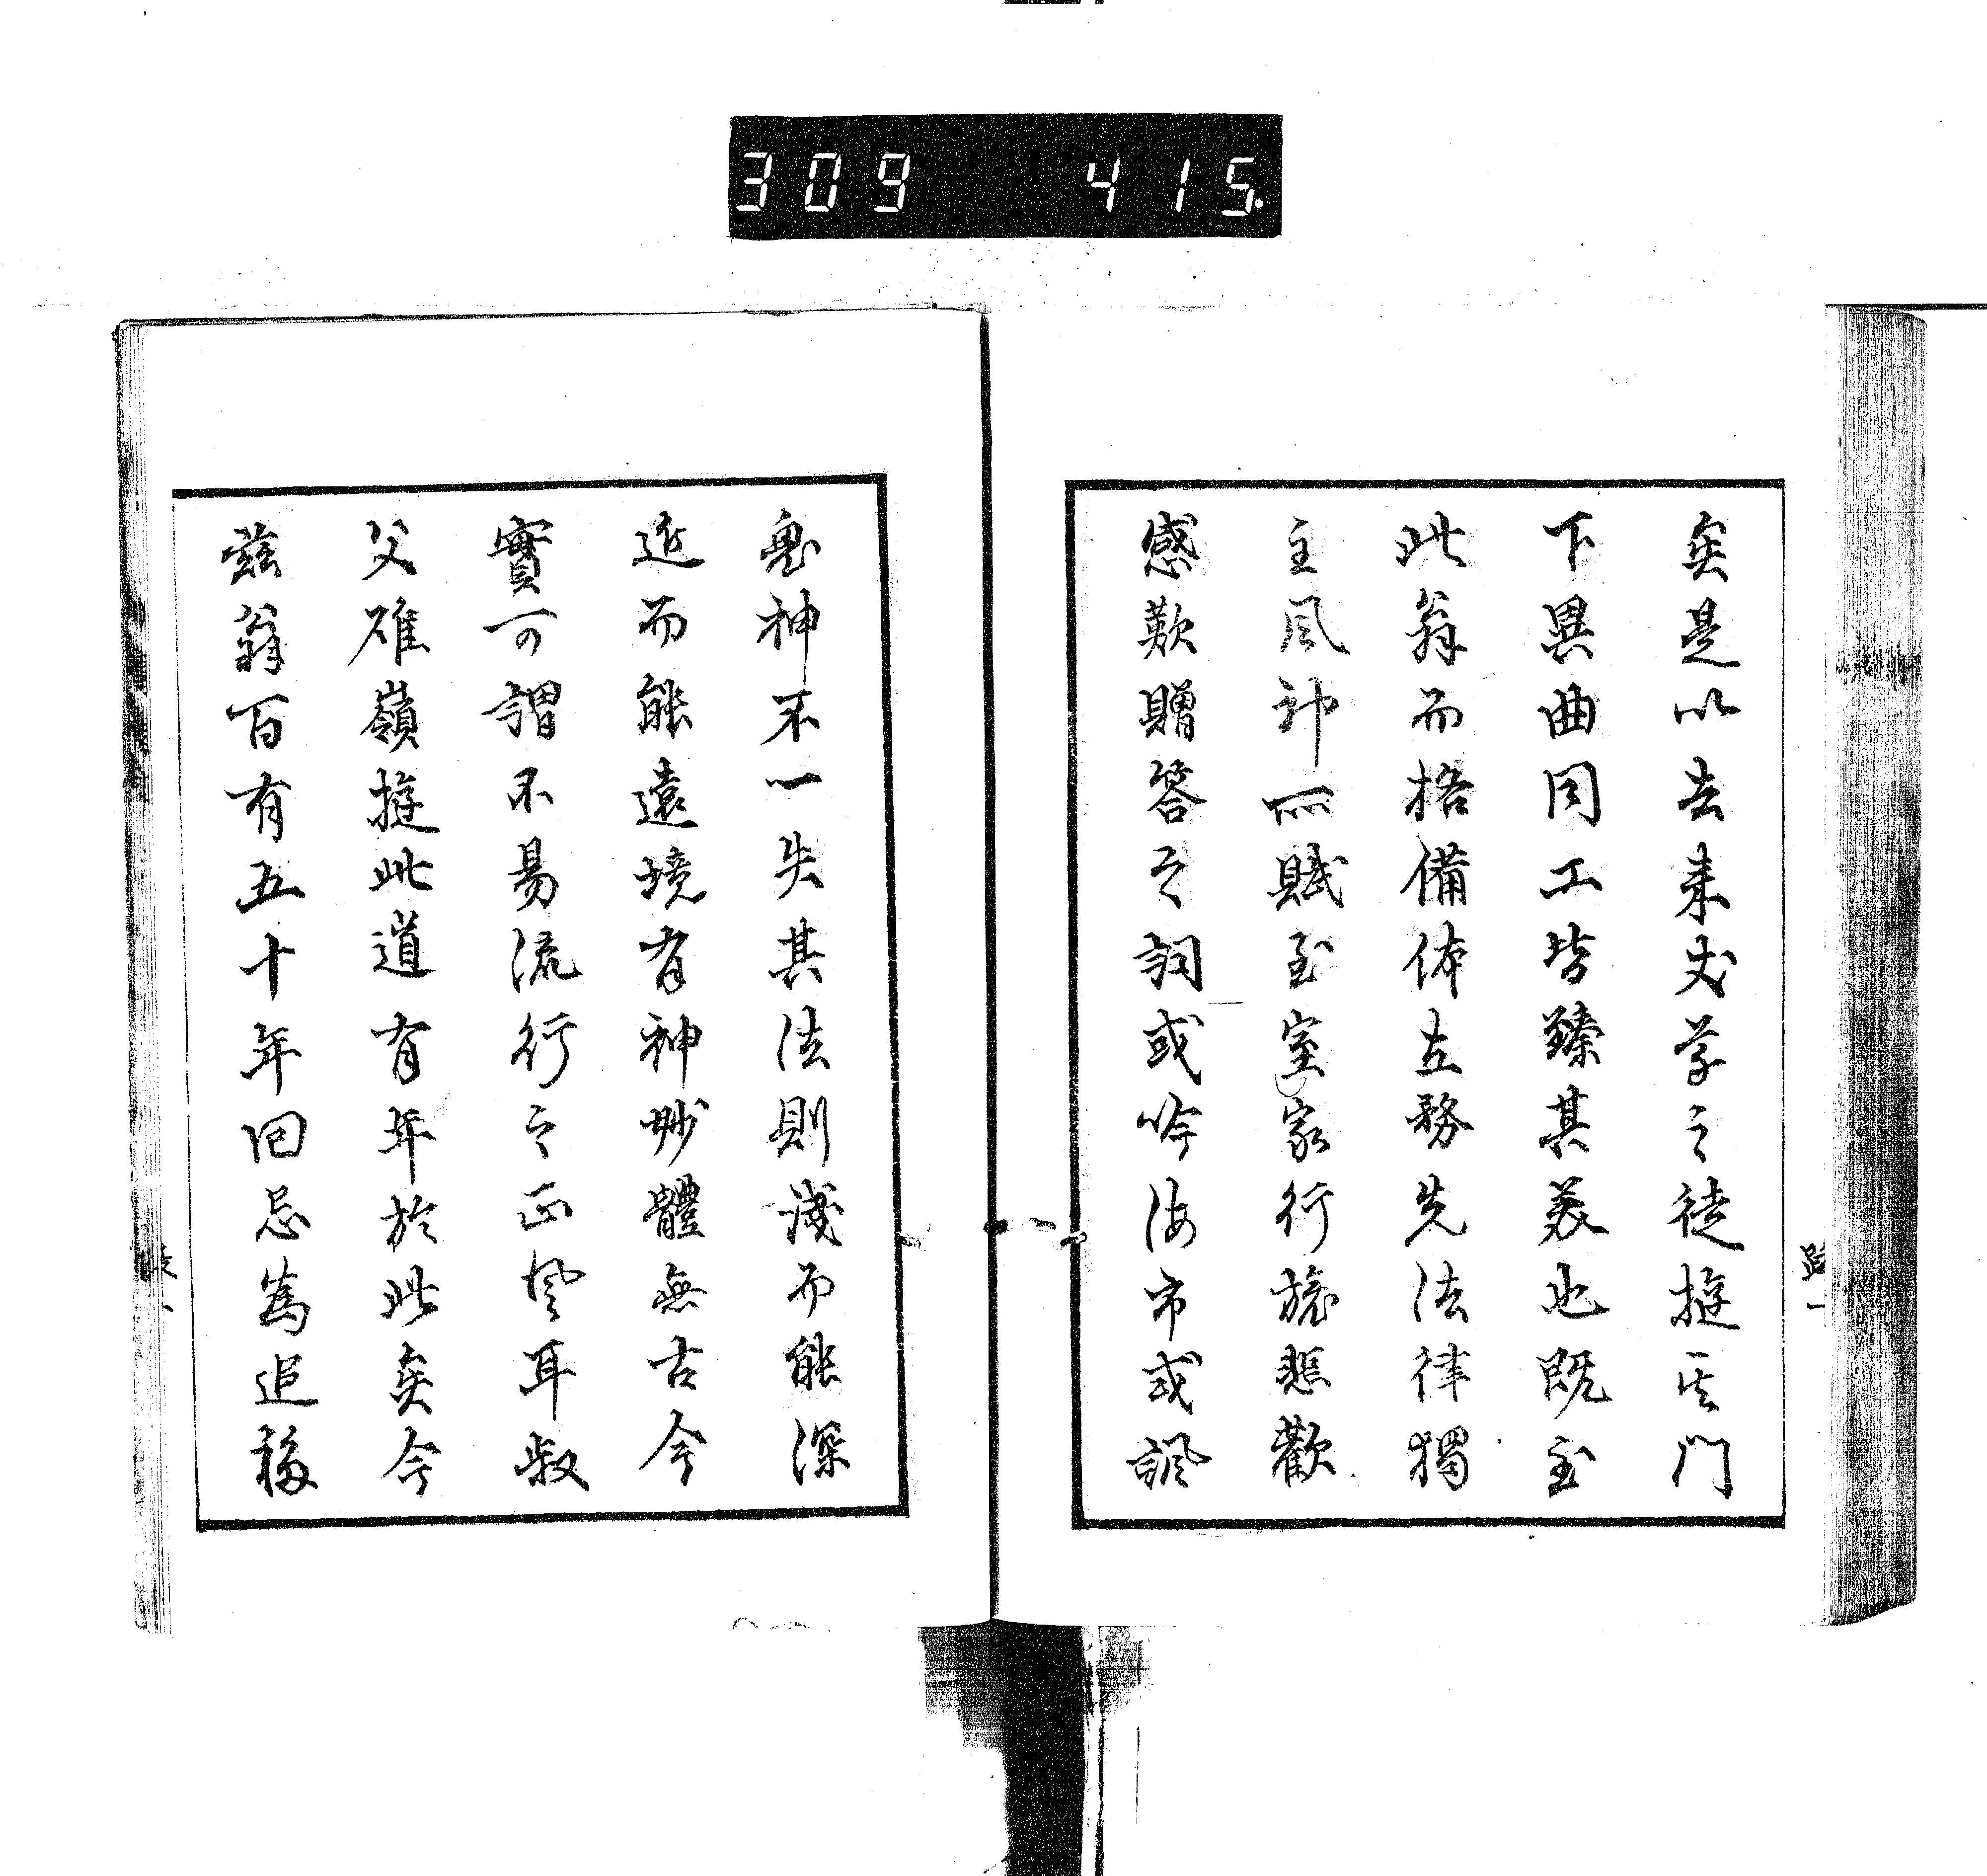 309 415.
矣是以去来丈草之徒挺其門
下異曲同工皆臻其美也既至
此翁而格備体立務先法律獨
主風神照賦至室家行旅悲歡
感歎贈答之詞或吟海市或諷
鬼神不一失其法則淺而能深
近而能遠境有神妙體無古今
實可謂不易流行之正風耳叔
父碓嶺挺此道有年於此矣今
茲翁百有五十年回忌為追福
跋一